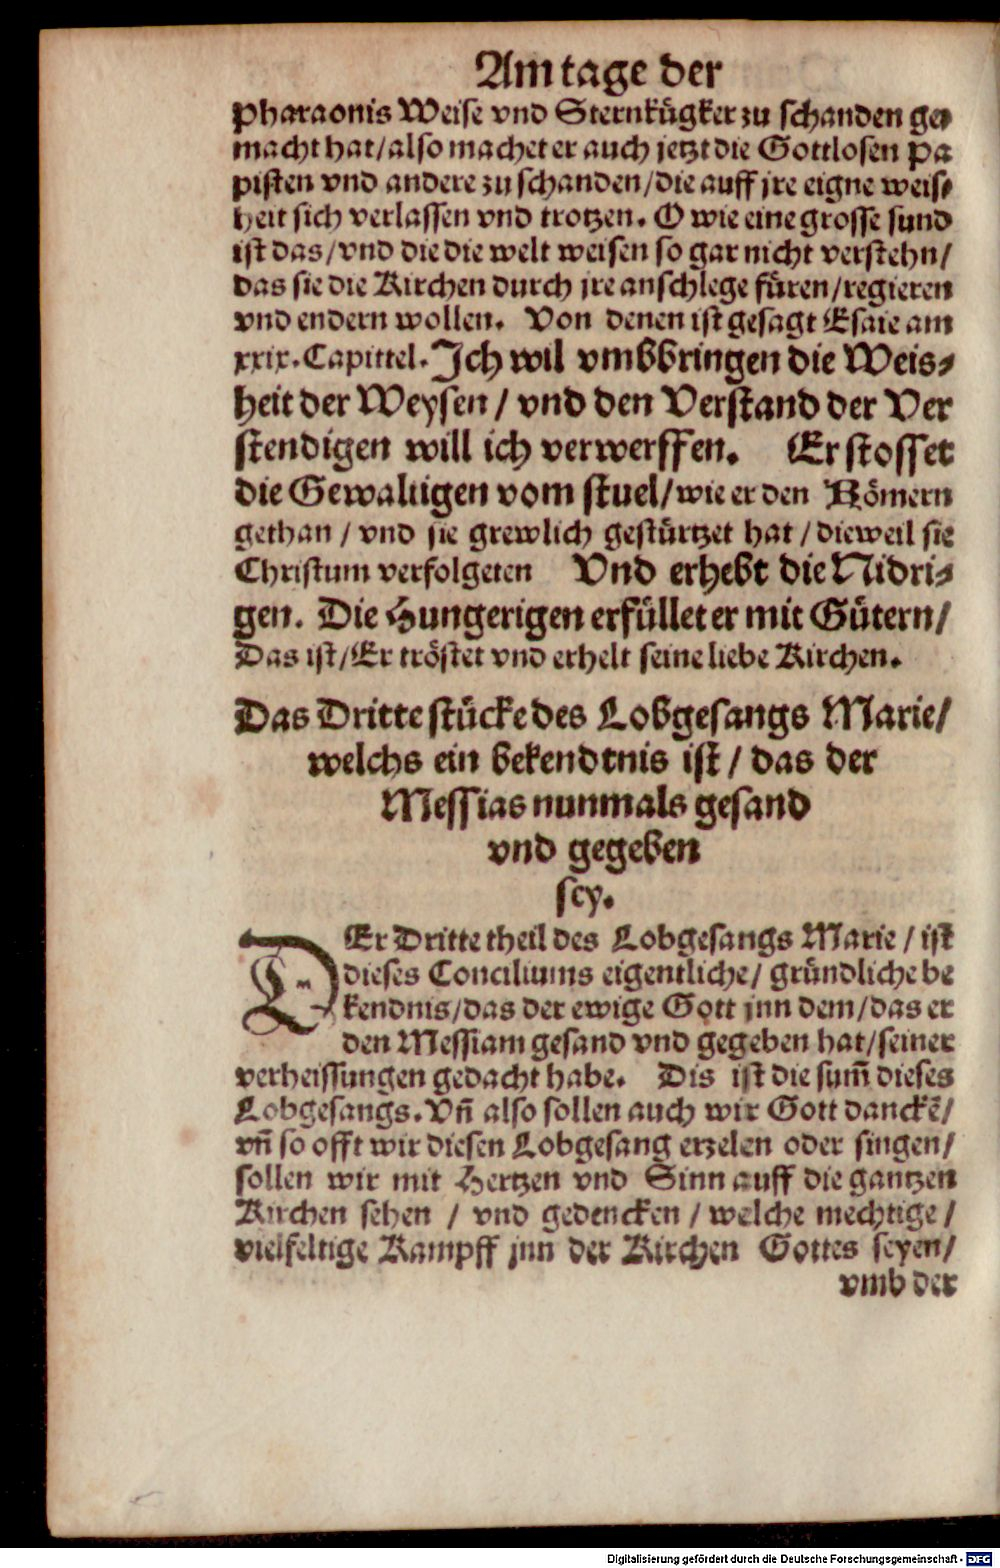 Am tage der
Pharaonis Weise vnd Sternkügker zu schanden ge⸗
macht hat/also machet er auch jetzt die Gottlosen Pa
pisten vnd andere zu schanden/die auff jre eigne weis⸗
heit sich verlassen vnd trotzen. O wie eine grosse sund
ist das/vnd die die welt weisen so gar nicht verstehn/
das sie die Kirchen durch jre anschlege füren/regieren
vnd endern wollen. Von denen ist gesagt Esaie am
xxix. Capittel. Ich wil vmbbringen die Weis⸗
heit der Weysen / vnd den Verstand der Ver
stendigen will ich verwerffen. Er stosset
die Gewaltigen vom stuel/wie er den Römern
gethan / vnd sie grewlich gestürtzet hat / dieweil sie
Christum verfolgeten Vnd erhebt die Nidri⸗
gen. Die Hungerigen erfüllet er mit Gütern/
Das ist/Er tröstet vnd erhelt seine liebe Kirchen.
Das Dritte stücke des Lobgesangs Marie/
welchs ein bekendtnis ist / das der
Messias nunmals gesand
vnd gegeben
sey.
DEr Dritte theil des Lobgesangs Marie / ist
dieses Conciliums eigentliche/ gründliche be
kendnis/das der ewige Gott jnn dem/das er
den Messiam gesand vnd gegeben hat/seiner
verheissungen gedacht habe. Dis ist die sum̄ dieses
Lobgesangs. Vn̄ also sollen auch wir Gott danckē/
vn̄ so offt wir diesen Lobgesang erzelen oder singen/
sollen wir mit Hertzen vnd Sinn auff die gantzen
Kirchen sehen / vnd gedencken / welche mechtige /
vielfeltige Kampff jnn der Kirchen Gottes seyen/
vmb der
Digitalisierung gefördert durch die Deutsche Forschungsgemeinschaft - DFG